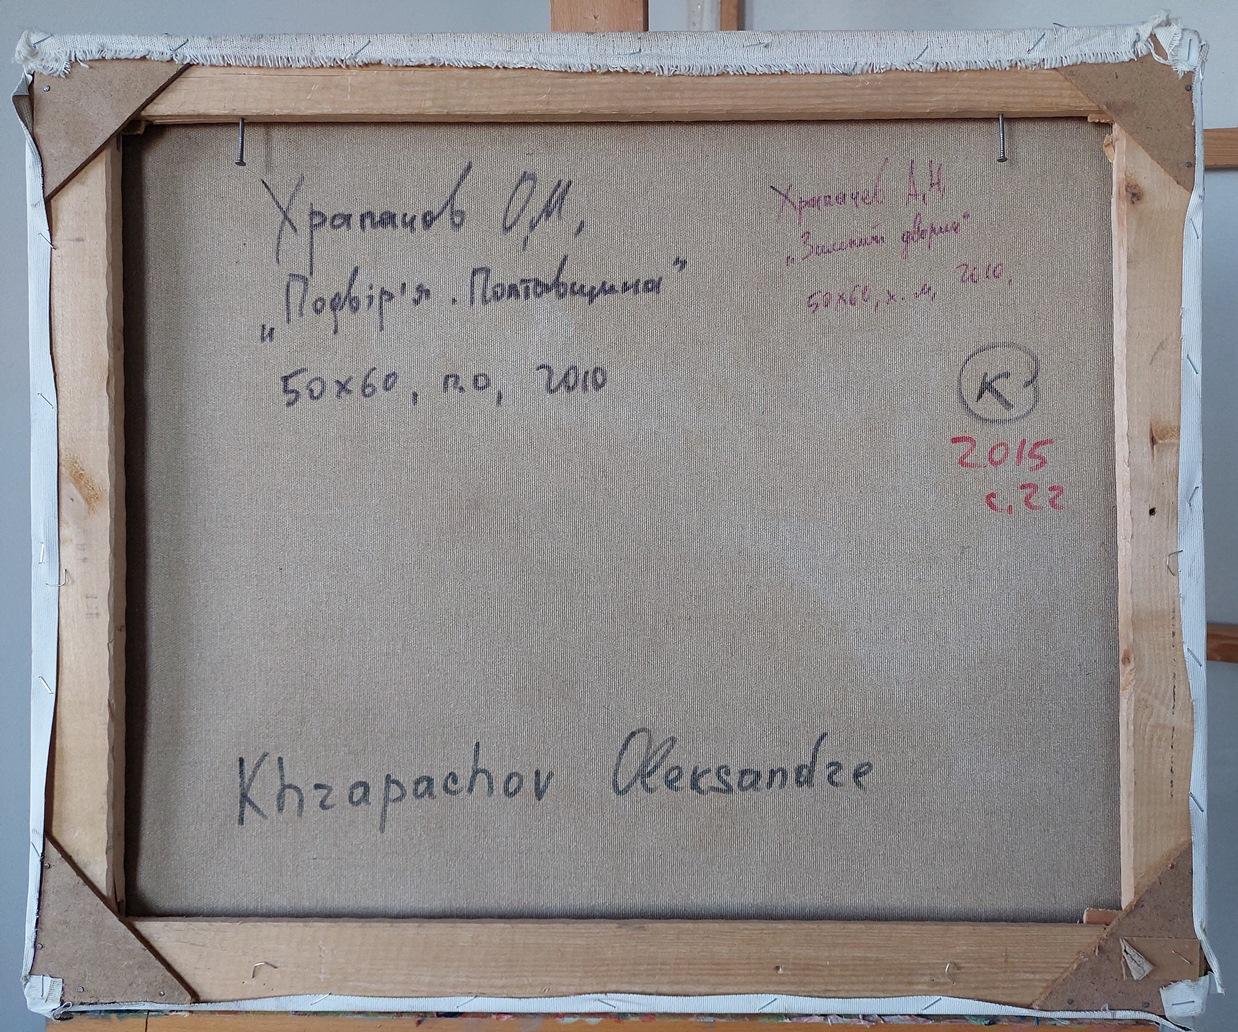 Храпачов О,М,
„Подвір'я. Полтавщина”
50х60, п.о, 2010
Храпачев А,Н,
„ дворик”
50х60, х.м, 2010,
К
2015
с,22
Khrapachov Oleksandre